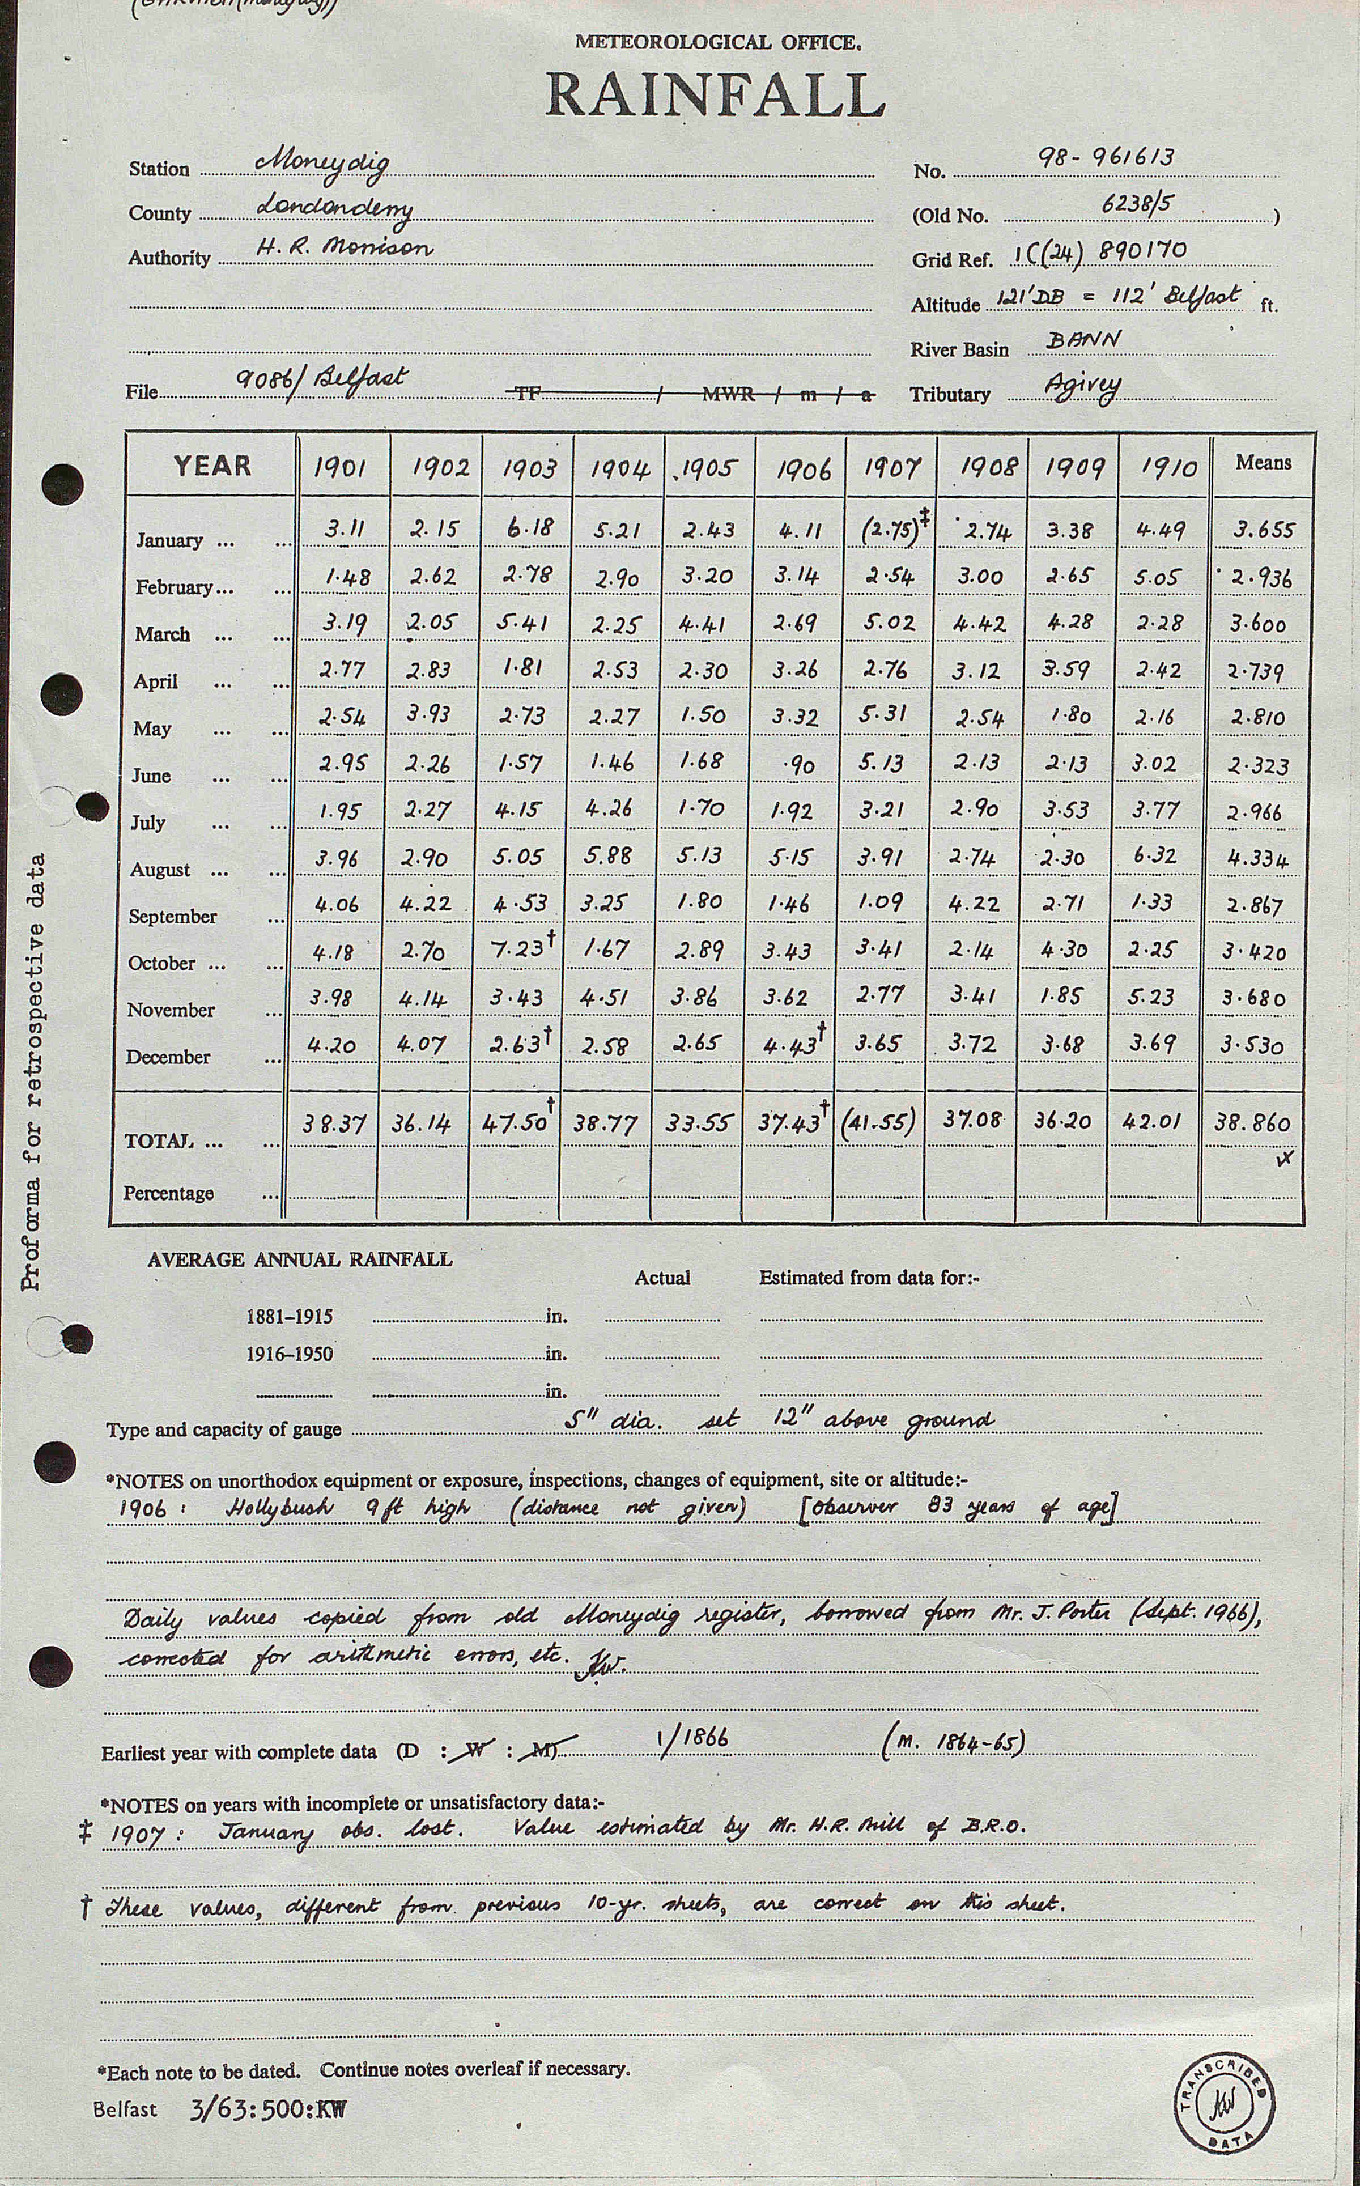 METEOROLOGICAL OFFICE.
RAINFALL
Station Moneydig No. 98-961613
County Londonderry (Old No. 6238/5 )
Authority H. R. Morrison Grid Ref. IC(24) 890170
Altitude 121'DB = 112' Belfast ft.
River Basin BANN
File 9086/Belfast TF / MWR / m / a Tributary Agivey
YEAR 1901 1902 1903 1904 1905 1906 1907 1908 1909 1910 Means
January ... ... 3.11 2.15 6.18 5.21 2.43 4.11 (2.75)‡ 2.74 3.38 4.49 3.655
February... ... 1.48 2.62 2.78 2.90 3.20 3.14 2.54 3.00 2.65 5.05 2.936
March ... ... 3.19 2.05 5.41 2.25 4.41 2.69 5.02 4.42 4.28 2.28 3.600
April ... ... 2.77 2.83 1.81 2.53 2.30 3.26 2.76 3.12 3.59 2.42 2.739
May ... ... 2.54 3.93 2.73 2.27 1.50 3.32 5.31 2.54 1.80 2.16 2.810
June ... ... 2.95 2.26 1.57 1.46 1.68 .90 5.13 2.13 2.13 3.02 2.323
July ... ... 1.95 2.27 4.15 4.26 1.70 1.92 3.21 2.90 3.53 3.77 2.966
August ... ... 3.96 2.90 5.05 5.88 5.13 5.15 3.91 2.74 2.30 6.32 4.334
September ... 4.06 4.22 4.53 3.25 1.80 1.46 1.09 4.22 2.71 1.33 2.867
October ... ... 4.18 2.70 7.23† 1.67 2.89 3.43 3.41 2.14 4.30 2.25 3.420
November ... 3.98 4.14 3.43 4.51 3.86 3.62 2.77 3.41 1.85 5.23 3.680
December ... 4.20 4.07 2.63† 2.58 2.65 4.43† 3.65 3.72 3.68 3.69 3.530
TOTAL ... ... 38.37 36.14 47.50† 38.77 33.55 37.43† (41.55) 37.08 36.20 42.01 38.860
Percentage ...
Proforma for retrospective data
AVERAGE ANNUAL RAINFALL
Actual Estimated from data for:-
1881–1915 in.
1916–1950 in.
in.
Type and capacity of gauge 5" dia. set 12" above ground
*NOTES on unorthodox equipment or exposure, inspections, changes of equipment, site or altitude:-
1906 : Hollybush 9 ft high (distance not given) [Observer 83 years of age]
Daily values copied from old Moneydig register, borrowed from Mr. J. Porter (Sept. 1966),
corrected for arithmetic errors, etc. KW.
Earliest year with complete data (D : W : M) 1/1866 (m. 1864-65)
*NOTES on years with incomplete or unsatisfactory data:-
‡ 1907 : January obs. lost. Value estimated by Mr. H.R. Mill of B.R.O.
† These values, different from previous 10-yr. sheets, are correct on this sheet.
*Each note to be dated. Continue notes overleaf if necessary.
Belfast 3/63:500:KW
TRANSCRIBED
KW
DATA